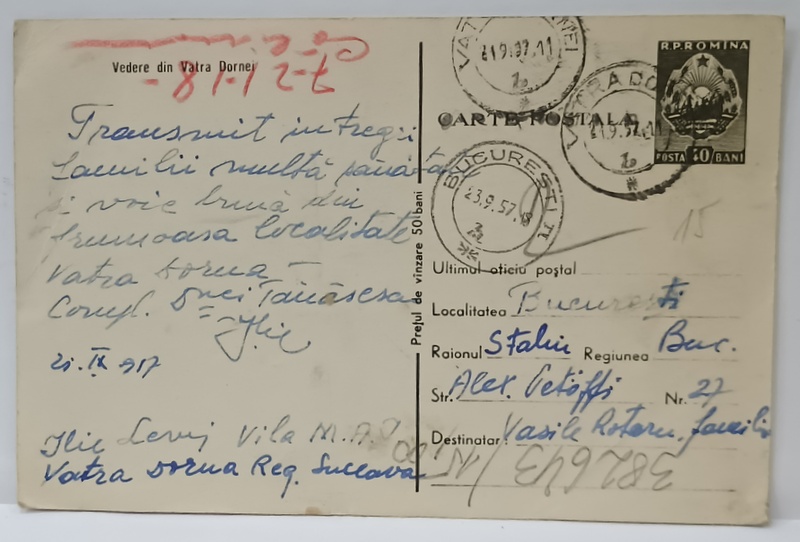 Vedere din Vatra Dornei
7-2 1-1 8-
Transmit intregii
familii multă sănătate
și voie bună din
frumoasa localitate
Vatra Dorna
Compl.
Ilie
21.IX 957
Ilie Vila M.A.
Vatra Dorna Reg. Suceava
Prețul de vînzare 50 bani
R.P.ROMINA
POSTA 40 BANI
CARTE POSTALĂ
VATRA DORNEI
21.9.57.11
VATRA DO
21.9.57.11
BUCUREȘTI
23.9.57
15
Ultimul oficiu poștal
Localitatea București
Raionul Stalin Regiunea Buc.
Str. Alex. Petöffi Nr. 27
Destinatar: Vasile Rotaru, familie
382643